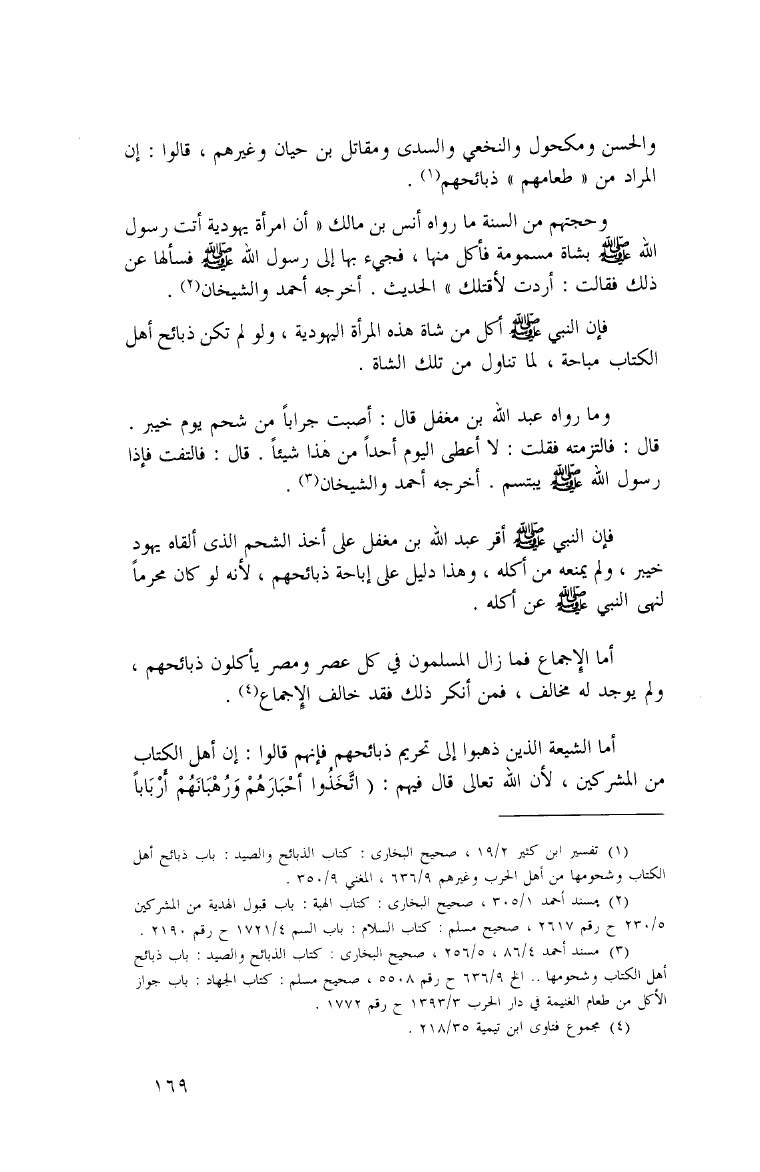 والحسن ومكحول والنخعي والسدى ومقاتل بن حيان وغيرهم ، قالوا : إن
المراد من « طعامهم » ذبائحهم(١) .
وحجتهم من السنة ما رواه أنس بن مالك « أن امرأة يهودية أتت رسول
الله ﷺ بشاة مسمومة فأكل منها ، فجيء بها إلى رسول الله ﷺ فسألها عن
ذلك فقالت : أردت لأقتلك » الحديث . أخرجه أحمد والشيخان(٢) .
فإن النبي ﷺ أكل من شاة هذه المرأة اليهودية ، ولو لم تكن ذبائح أهل
الكتاب مباحة ، لما تناول من تلك الشاة .
وما رواه عبد الله بن مغفل قال : أصبت جراباً من شحم يوم خيبر .
قال : فالتزمته فقلت : لا أعطى اليوم أحداً من هذا شيئاً . قال : فالتفت فإذا
رسول الله ﷺ يبتسم . أخرجه أحمد والشيخان(٣) .
فإن النبي ﷺ أقر عبد الله بن مغفل على أخذ الشحم الذى ألقاه يهود
خيبر ، ولم يمنعه من أكله ، وهذا دليل على إباحة ذبائحهم ، لأنه لو كان محرماً
لنهى النبي ﷺ عن أكله .
أما الإجماع فما زال المسلمون في كل عصر ومصر يأكلون ذبائحهم ،
ولم يوجد له مخالف ، فمن أنكر ذلك فقد خالف الإجماع(٤) .
أما الشيعة الذين ذهبوا إلى تحريم ذبائحهم فإنهم قالوا : إن أهل الكتاب
من المشركين ، لأن الله تعالى قال فيهم : ( اتَّخَذُوا أَحْبَارَهُمْ وَرُهْبَانَهُمْ أَرْبَاباً
(١) تفسير ابن كثير ١٩/٢ ، صحيح البخارى : كتاب الذبائح والصيد : باب ذبائح أهل
الكتاب وشحومها من أهل الحرب وغيرهم ٦٣٦/٩ ، المغني ٣٥٠/٩ .
(٢) مسند أحمد ٣٠٥/١ ، صحيح البخارى : كتاب الهبة : باب قبول الهدية من المشركين
٢٣٠/٥ ح رقم ٢٦١٧ ، صحيح مسلم : كتاب السلام : باب السم ١٧٢١/٤ ح رقم ٢١٩٠ .
(٣) مسند أحمد ٨٦/٤ ، ٢٥٦/٥ ، صحيح البخارى : كتاب الذبائح والصيد : باب ذبائح
أهل الكتاب وشحومها .. الخ ٦٣٦/٩ ح رقم ٥٥٠٨ ، صحيح مسلم : كتاب الجهاد : باب جواز
الأكل من طعام الغنيمة في دار الحرب ١٣٩٣/٣ ح رقم ١٧٧٢ .
(٤) مجموع فتاوى ابن تيمية ٢١٨/٣٥ .
١٦٩